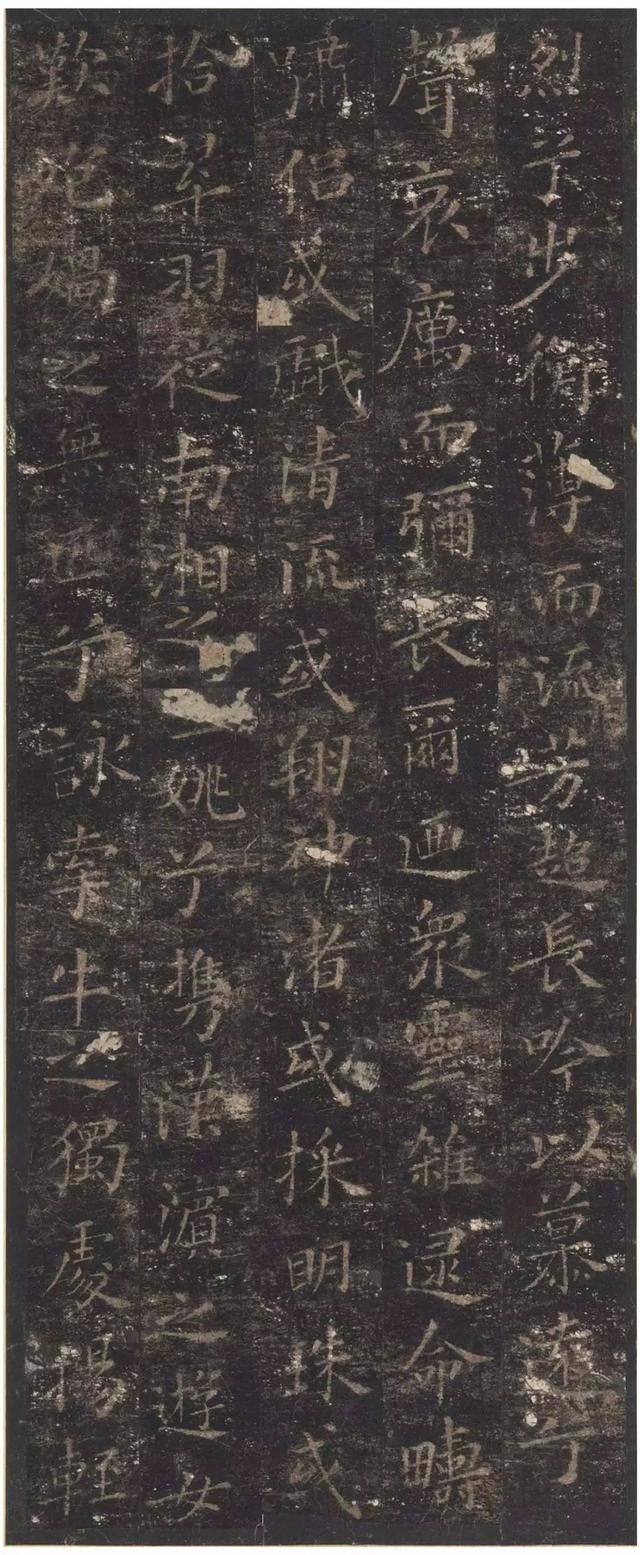 烈兮步衡薄而流芳超長吟以慕遠兮
聲哀厲而彌長爾迺衆靈雜遝命疇
嘯侶或戲清流或翔神渚或採明珠或
拾翠羽從南湘之二姚兮携漢濱之遊女
歎匏媧之無匹兮詠牽牛之獨處揚輕